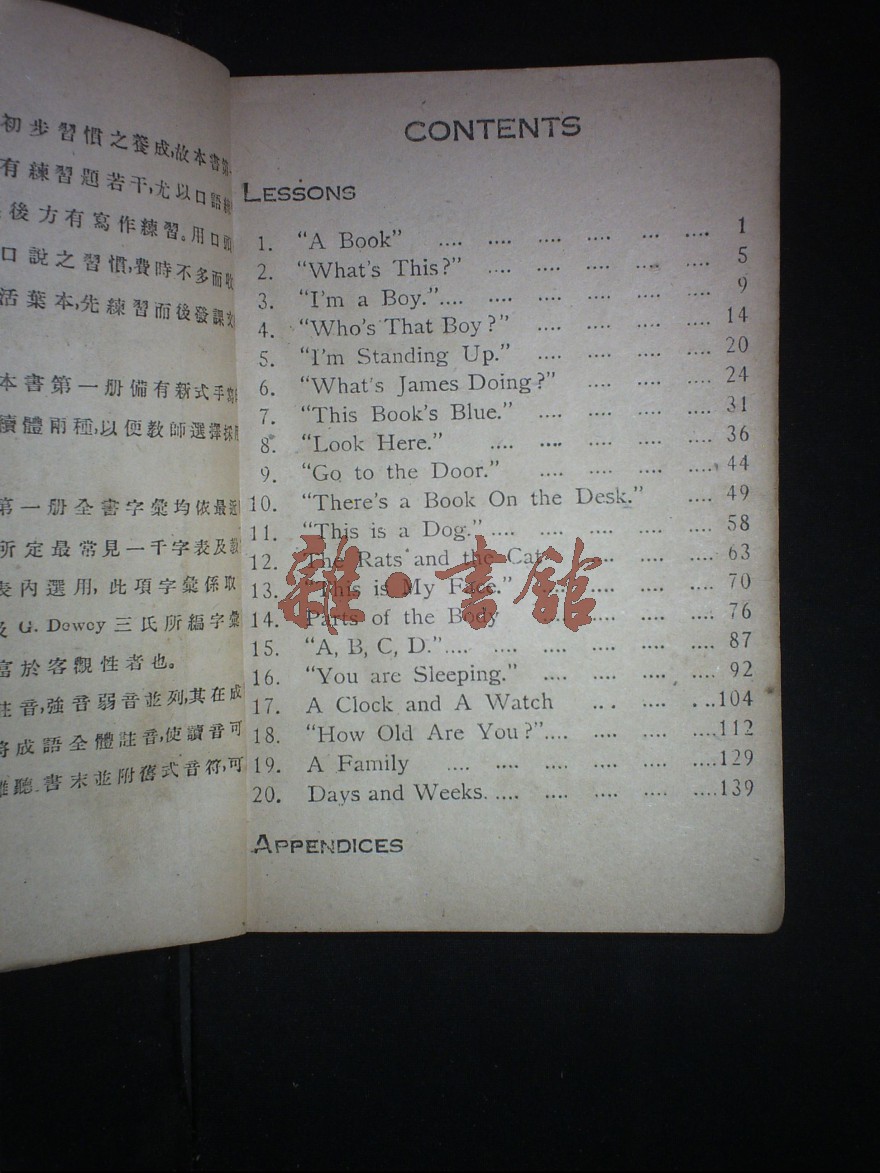 初步習慣之養成,故本書第一
有練習題若干,尤以口語
後方有寫作練習。用口頭
口說之習慣,費時不多而收
活葉本,先練習而後發課文
本書第一册備有新式手寫
讀體兩種,以便教師選擇採用
第一册全書字彙均依最近
所定最常見一千字表及
表內選用,此項字彙係取
及 G. Dewey 三氏所編字彙
富於客觀性者也。
註音,強音弱音並列,其在成
將成語全體註音,使讀音可
難聽.書末並附舊式音符,可
CONTENTS
LESSONS
1. "A Book" .... .... .... .... ... .... 1
2. "What's This?" .... .... .... .... .... 5
3. "I'm a Boy.".... .... .... .... .... .... 9
4. "Who's That Boy?" .... .... .... .... 14
5. "I'm Standing Up." .... .... .... .... 20
6. "What's James Doing?" .... .... .... 24
7. "This Book's Blue." .... .... .... .... 31
8. "Look Here." .... .... .... .... .... 36
9. "Go to the Door." .... .... .... .... 44
10. "There's a Book On the Desk." .... 49
11. "This is a Dog.".... .... .... .... .... 58
12. The Rats and the Cat .... .... .... 63
13. "This is My Face." .... .... .... .... 70
14. Parts of the Body .... .... .... .... 76
15. "A, B, C, D.".... .... .... .... .... .... 87
16. "You are Sleeping." .... .... .... .... 92
17. A Clock and A Watch .. . .... .... ...104
18. "How Old Are You?".... .... .... ....112
19. A Family .... .... .... .... .... ....129
20. Days and Weeks..... .... .... .... ....139
APPENDICES
雜·書館